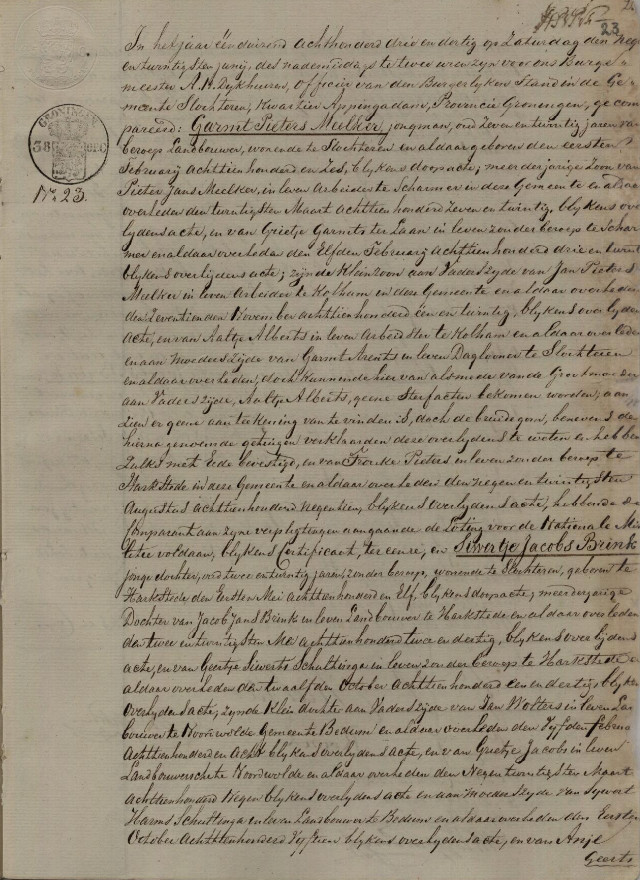 23
GRONINGEN
38
No. 23.
In het jaar één duizend achthonderd drie en dertig op Zaturdag den Neg-
en twintigsten junij, des nademiddags te twee uren zyn voor ons Burge-
meester A.H. Dijkhuizen, Officier van den Burgerlyken Stand in de Ge-
meente Slochteren, Kwartier Appingadam, Provincie Groningen, gecom-
pareerd: Garmt Pieters Meelker, jongman, oud Zeven en twintig jaren van
beroep Landbouwer, wonende te Slochteren en aldaar geboren den eersten
Februarij Achttienhonderd en Zes, blykens doopacte; meerderjarige Zoon van
Pieter Jans Meelker, in leven Arbeider te Scharmer in dese Gemeente en aldaar
overleden den twintigsten Maart Achttienhonderd Zeven en twintig, blykens over-
lydens acte, en van Grietje Garmts ter Laan in leven zonder beroep te Schar-
mer en aldaar overleden den Elfden Februarij Achttienhonderd drie en twintig
blykens overlydens acte; zijnde Kleinzoon aan Vaders zyde van Jan Pieters
Meelker in leven Arbeider te Kolham in dese Gemeente en aldaar overleden
den Zeventienden November achttienhonderd één en twintig, blykens overlydens
acte, en van Aaltje Alberts in leven Arbeidster te Kolham en aldaar overleden
en aan Moeders zijde van Garmt Arents in leven Daglooner te Slochteren
en aldaar overleden, doch kunnende hier van als mede van de Grootmoeder
aan Vaders zijde, Aaltje Alberts, geene Sterfacten bekomen worden, aan-
zien er geene aanteekening van te vinden is, doch de bruidegom, benevens de
hierna genoemde getuigen verklaarden dese overlydens te weten en hebben
Zulks met Eede bevestigd, en van Frouke Pieters in leven zonder beroep te
Harkstede in dese Gemeente en aldaar overleden den Negen en twintigsten
Augustus achttienhonderd Negentien, blykens overlydens acte; hebbende de
Comparant aan zyne verpligtingen aangaande de Loting voor de Nationale Mi-
litie voldaan, blykens Certificaat, ter eenre, en Siwertje Jacobs Brink
jonge dochter, oud twee en twintig jaren, zonder beroep, wonende te Slochteren, geboren te
Harkstede den Eersten Mei Achttienhonderd en Elf, blykens doopacte; meerderjarige
Dochter van Jacob Jans Brink in leven Landbouwer te Harkstede en aldaar overleden
den twee en twintigsten Mei Achttienhonderd twee en dertig, blykens overlydens
acte, en van Geertje Siwerts Schultinga in leven zonder beroep te Harkstede en
aldaar overleden den twaalfden October Achttienhonderd een en dertig, blykens
overlydens acte; zynde Klein dochter aan Vaders zyde van Jan Wolters in leven Land-
bouwer te Noordwolde Gemeente Bedum en aldaar overleden den Vyfden februarij
Achttienhonderd en Acht blykens overlydens acte, en van Grietje Jacobs in leven
Landbouwersche te Noordwolde en aldaar overleden den Negen twintigsten Maart
Achttienhonderd Negen blykens overlydens acte en aan Moeders zyde van Sywert
Harms Schultinga in leven Landbouwer te Bedum en aldaar overleden den Eersten
October Achttienhonderd Vyftien blykens overlydens acte, en van Anje
Geerts